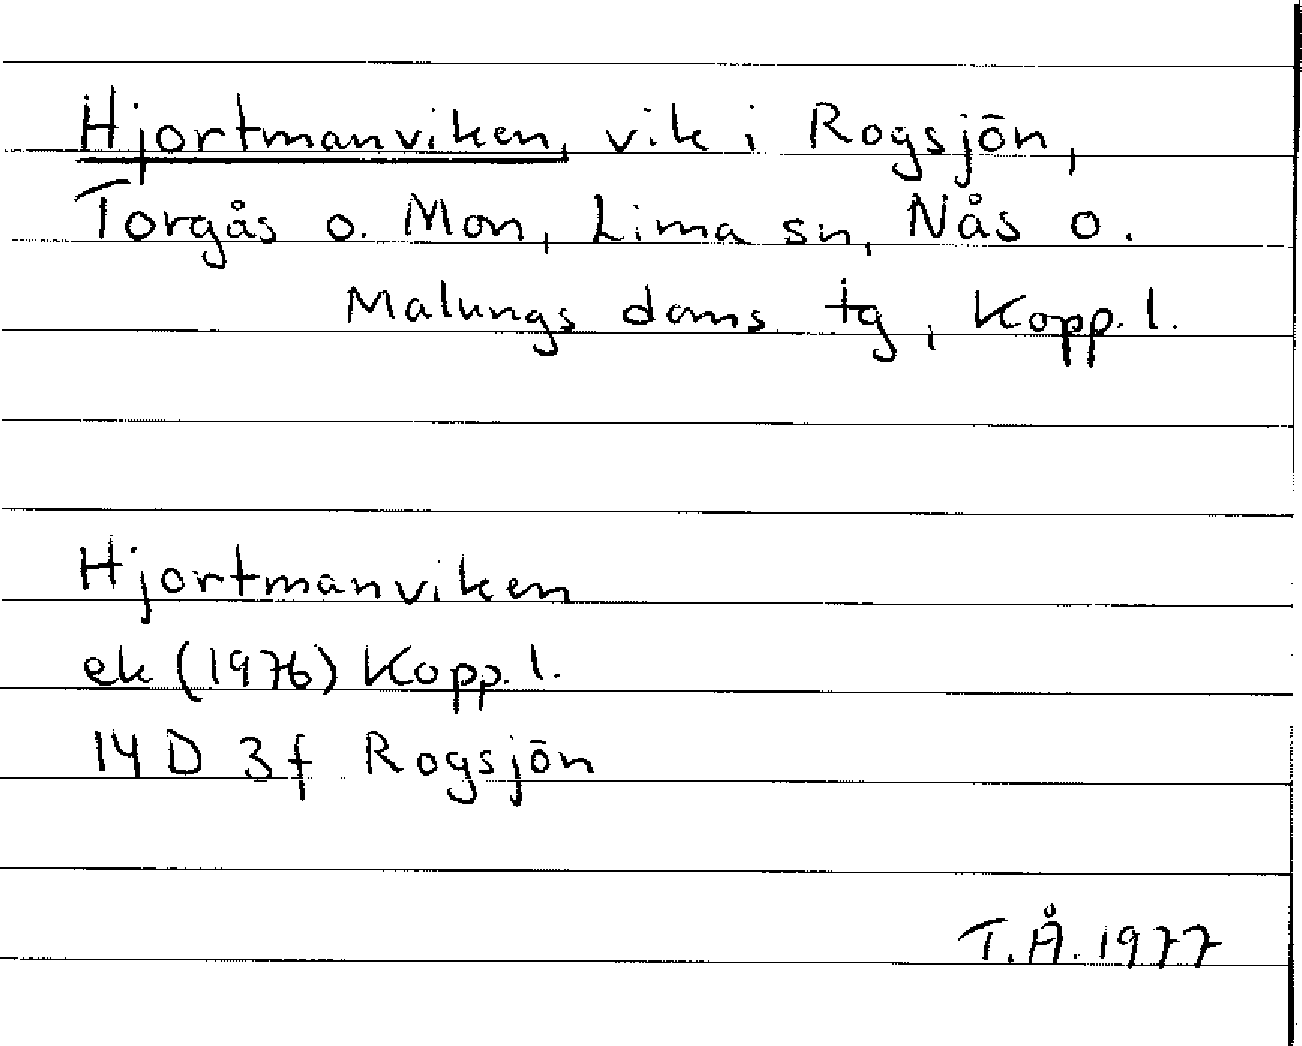 Hjortmanviken, vik i Rogsjön,
Torgås o. Mon, Lima sn, Nås o.
Malungs doms tg, Kopp. l.
Hjortmanviken
ek (1976) Kopp. l.
14 D 3f Rogsjön
T.Å. 1977